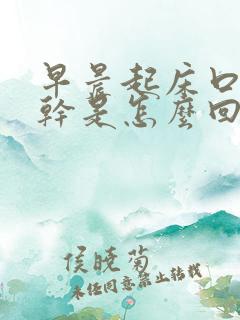 早晨起床口
幹是怎麼回
侯曉菊
未经同意禁止转载